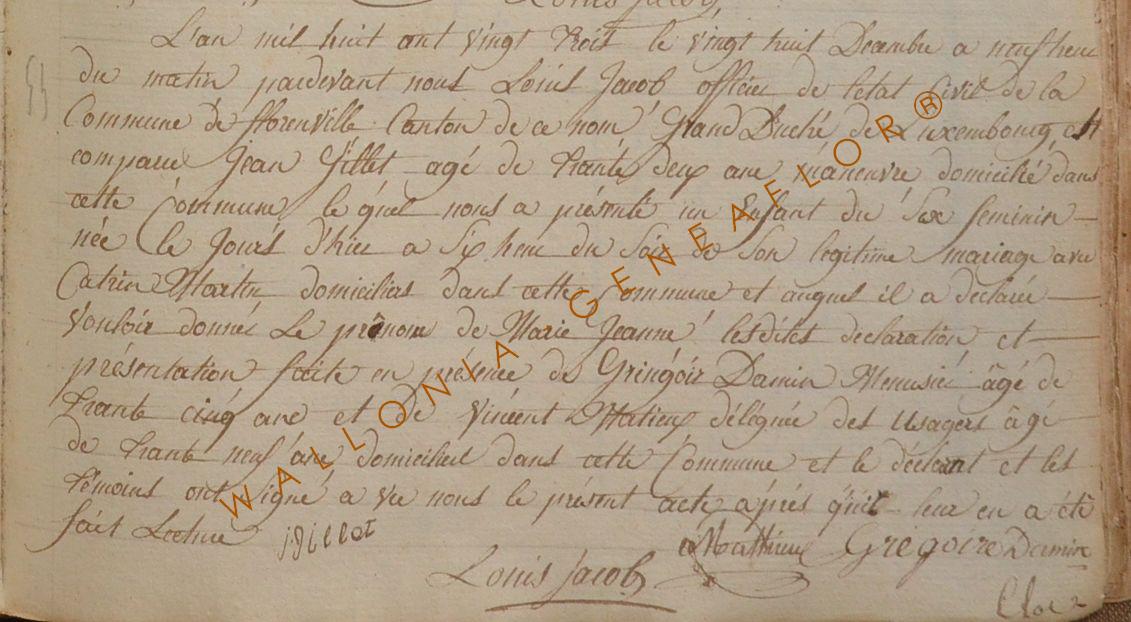 Louis Jacob,
L'an mil huit cent vingt trois le vingt huit Decembre a neuf heur
du matin pardevant nous Louis Jacob officier de letat Civil de la
Commune de fflorenville Canton de ce nom Grand Duché de Luxembourg, est
comparu Jean Gillet agé de trante deux ans máneuvre domicilié dans
cette Commune, le quel nous a présenté un Enfant du Sex feminin
née le Jours d'hier a Six heur du Soir de Son legitime mariage avec
Catrin Martin domiciliés dans cette Commune et auquel il a declarée
Vouloir donner Le prénom de Marie Jeanne lesdites declaration et
présentation faite en présence de Gringóir Damin Menusié âgé de
trante cinq ans et de Vincent Matieux délégnée des Usagers âgé
de trante neuf ans domiciliées dans cette Commune et le déclarant et les
témoins ont signé avec nous le présent acte aprés quil leur en a été
fait Lecture
j:gillet
Mathieux Gregoire Damin
Louis Jacob
53
WALLONIA GENEAFLOR®